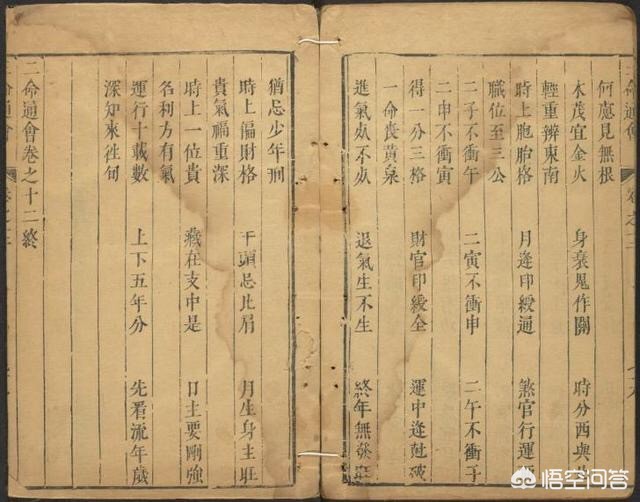 命通會
何處見無根
木茂宜金火 身衰鬼作關 時分西與
輕重辨東南
時上胞胎格 月逢印綬通 煞官行運
職位至三公
二子不衝午 二寅不衝申 二午不衝子
二申不衝寅
得一分三格 財官印綬全 運中逢尅破
一命喪黃泉
進氣死不死 退氣生不生 終年無發旺
猶忌少年刑
時上偏財格 干頭忌比肩 月生身主旺
貴氣福重深
時上一位貴 藏在支中是 日主要剛強
名利方有氣
運行十載數 上下五年分 先看流年歲
深知來往旬
三命通會卷之十二終
悟空问答